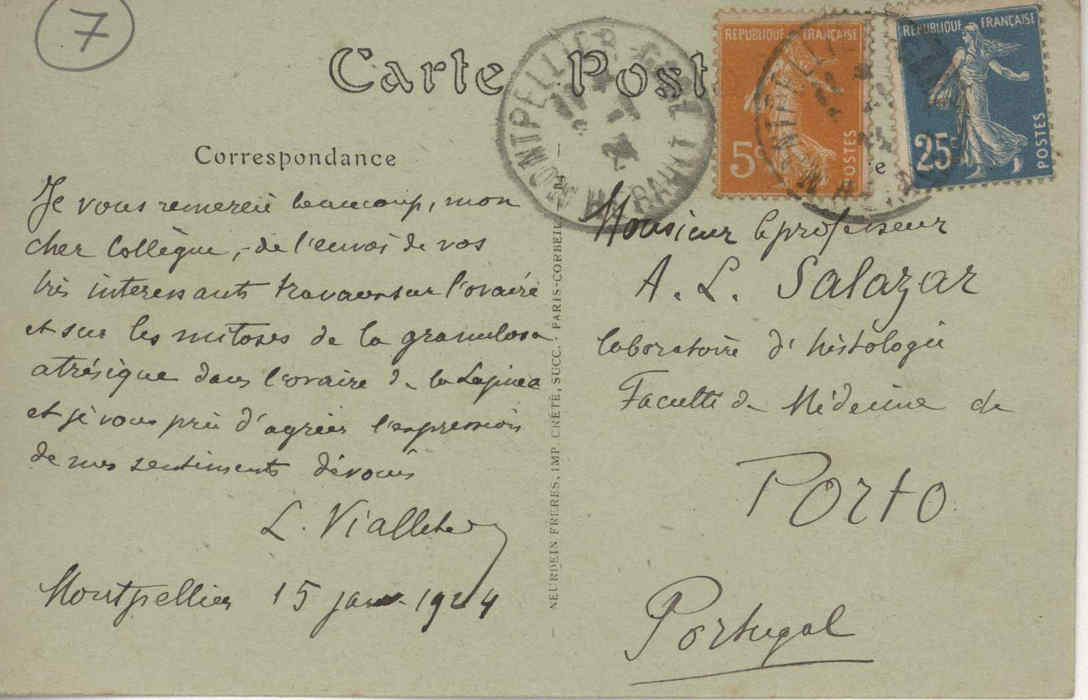 7
Carte Post
MONTPELLIER GARE
HERAULT
24
REPUBLIQUE FRANÇAISE
5c
POSTES
REPUBLIQUE FRANÇAISE
25c
POSTES
Correspondance
Je vous remercie beaucoup, mon
cher Collègue, de l'envoi de vos
très interessants travaux sur l'ovaire
et sur les mitoses de la granulosa
atrésique dans l'ovaire de la Lapine
et je vous prie d'agréer l'expression
de mes sentiments dévoués
L. Vialleton
Montpellier 15 janv. 1924
NEURDEIN FRÈRES, IMP. CRÉTÉ, SUCC. - PARIS-CORBEIL
Monsieur le professeur
A. L. Salazar
laboratoire d'histologie
Faculté de Médecine de
Porto
Portugal